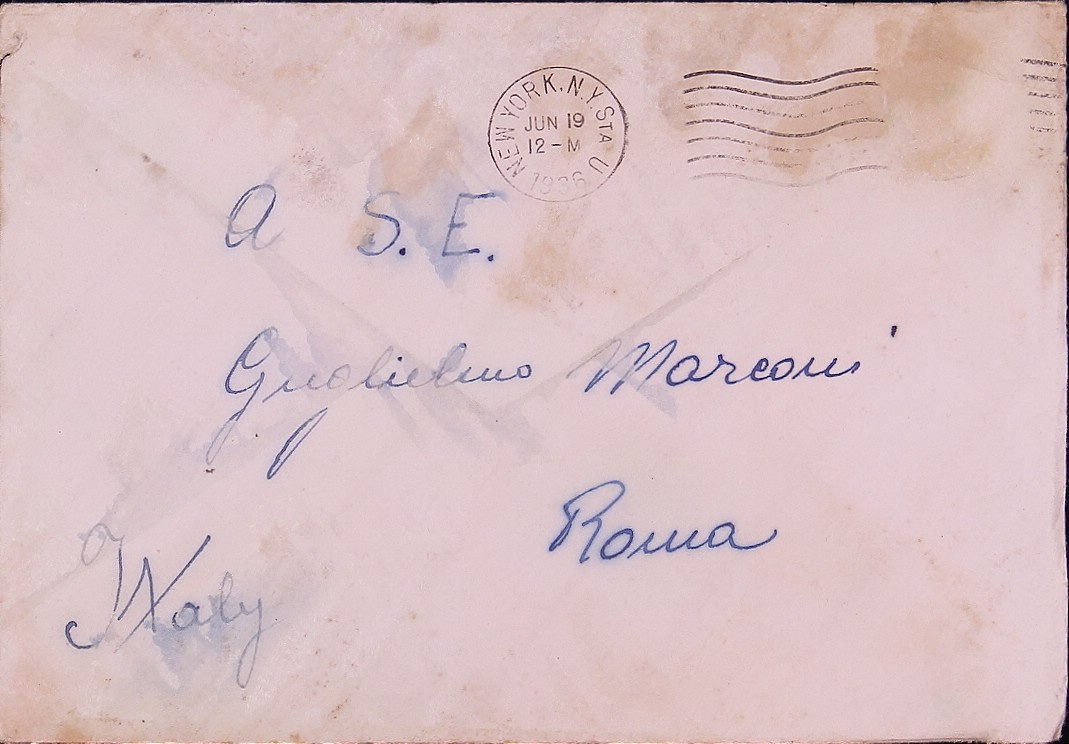 NEW YORK, N.Y. STA U
JUN 19
12-M
1936
A S. E.
Guglielmo Marconi
Roma
Italy